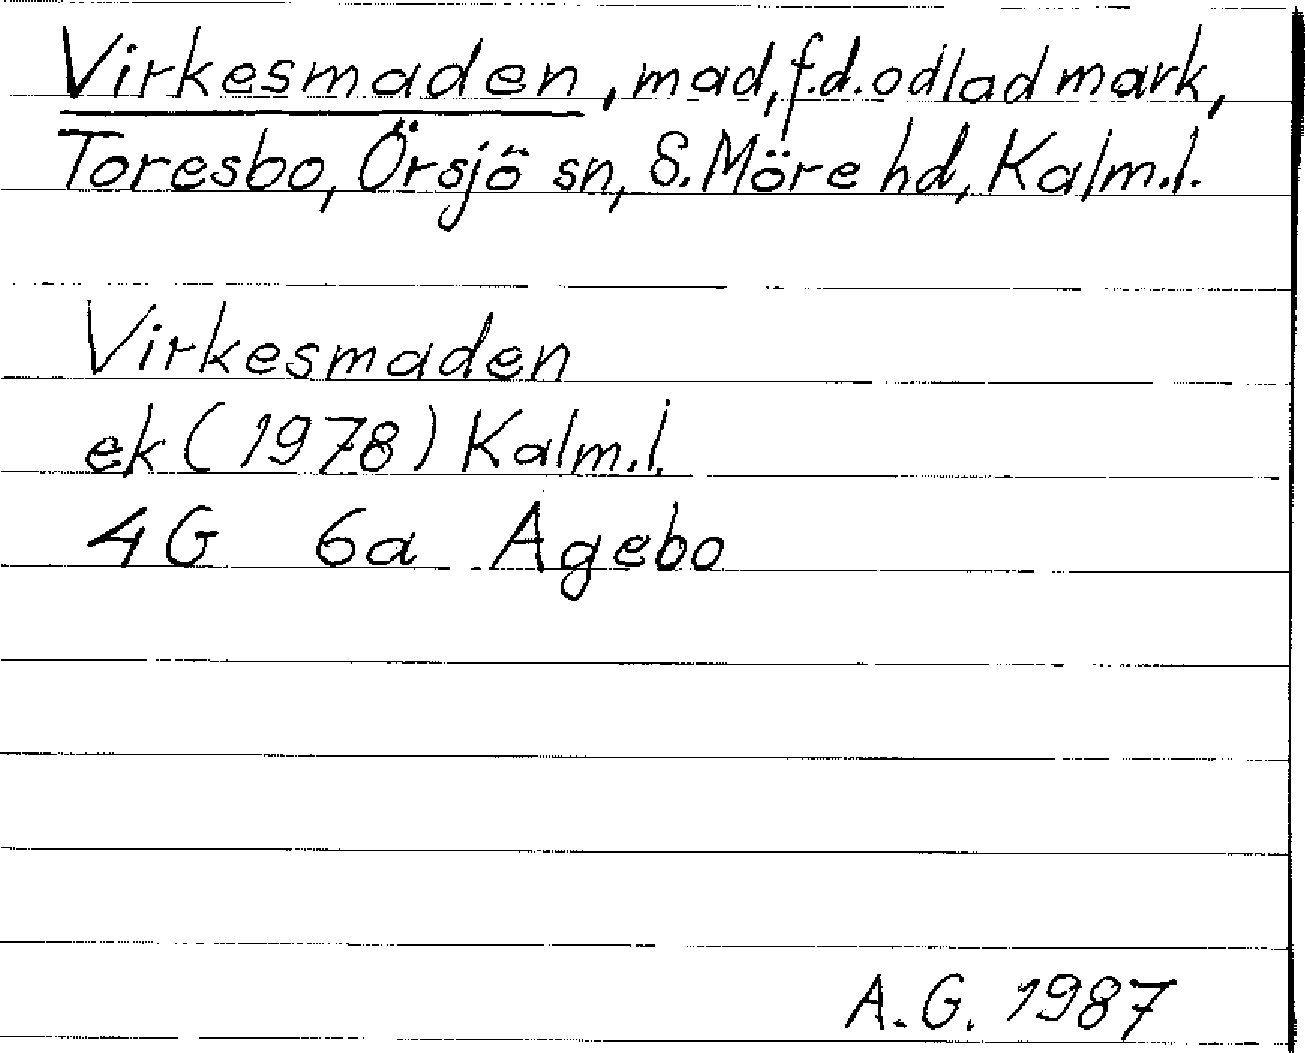 Virkesmaden, mad, f.d. odlad mark,
Toresbo, Örsjö sn, S. Möre hd, Kalm.l.
Virkesmaden
ek (1978) Kalm.l.
4G 6a Agebo
A.G. 1987